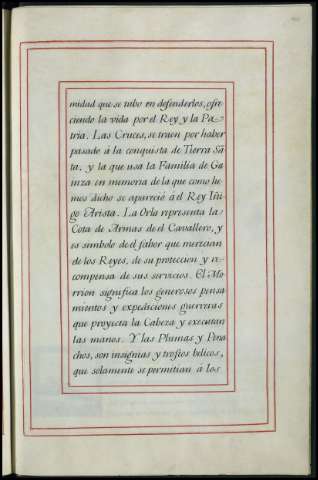 midad que se tubo en defenderlos, ofre
ciendo la vida por el Rey y la Pa
tria. Las Cruces, se traen por haber
pasado á la conquista de Tierra Sã
ta, y la que usa la Familia de Ga
inza en memoria de la que como he
mos dicho se apareció á el Rey Iñi
go Arista. La Orla representa la
Cota de Armas de el Cavallero, y
es simbolo de el fabor que merecian
de los Reyes, de su proteccion y re
compensa de sus servicios. El Mo
rrion significa los generosos pensa
mientos y expediciones guerreras
que proyecta la Cabeza y executan
las manos. Y las Plumas y Pena
chos, son insignias y trofeos belicos,
que solamente se permitian á los